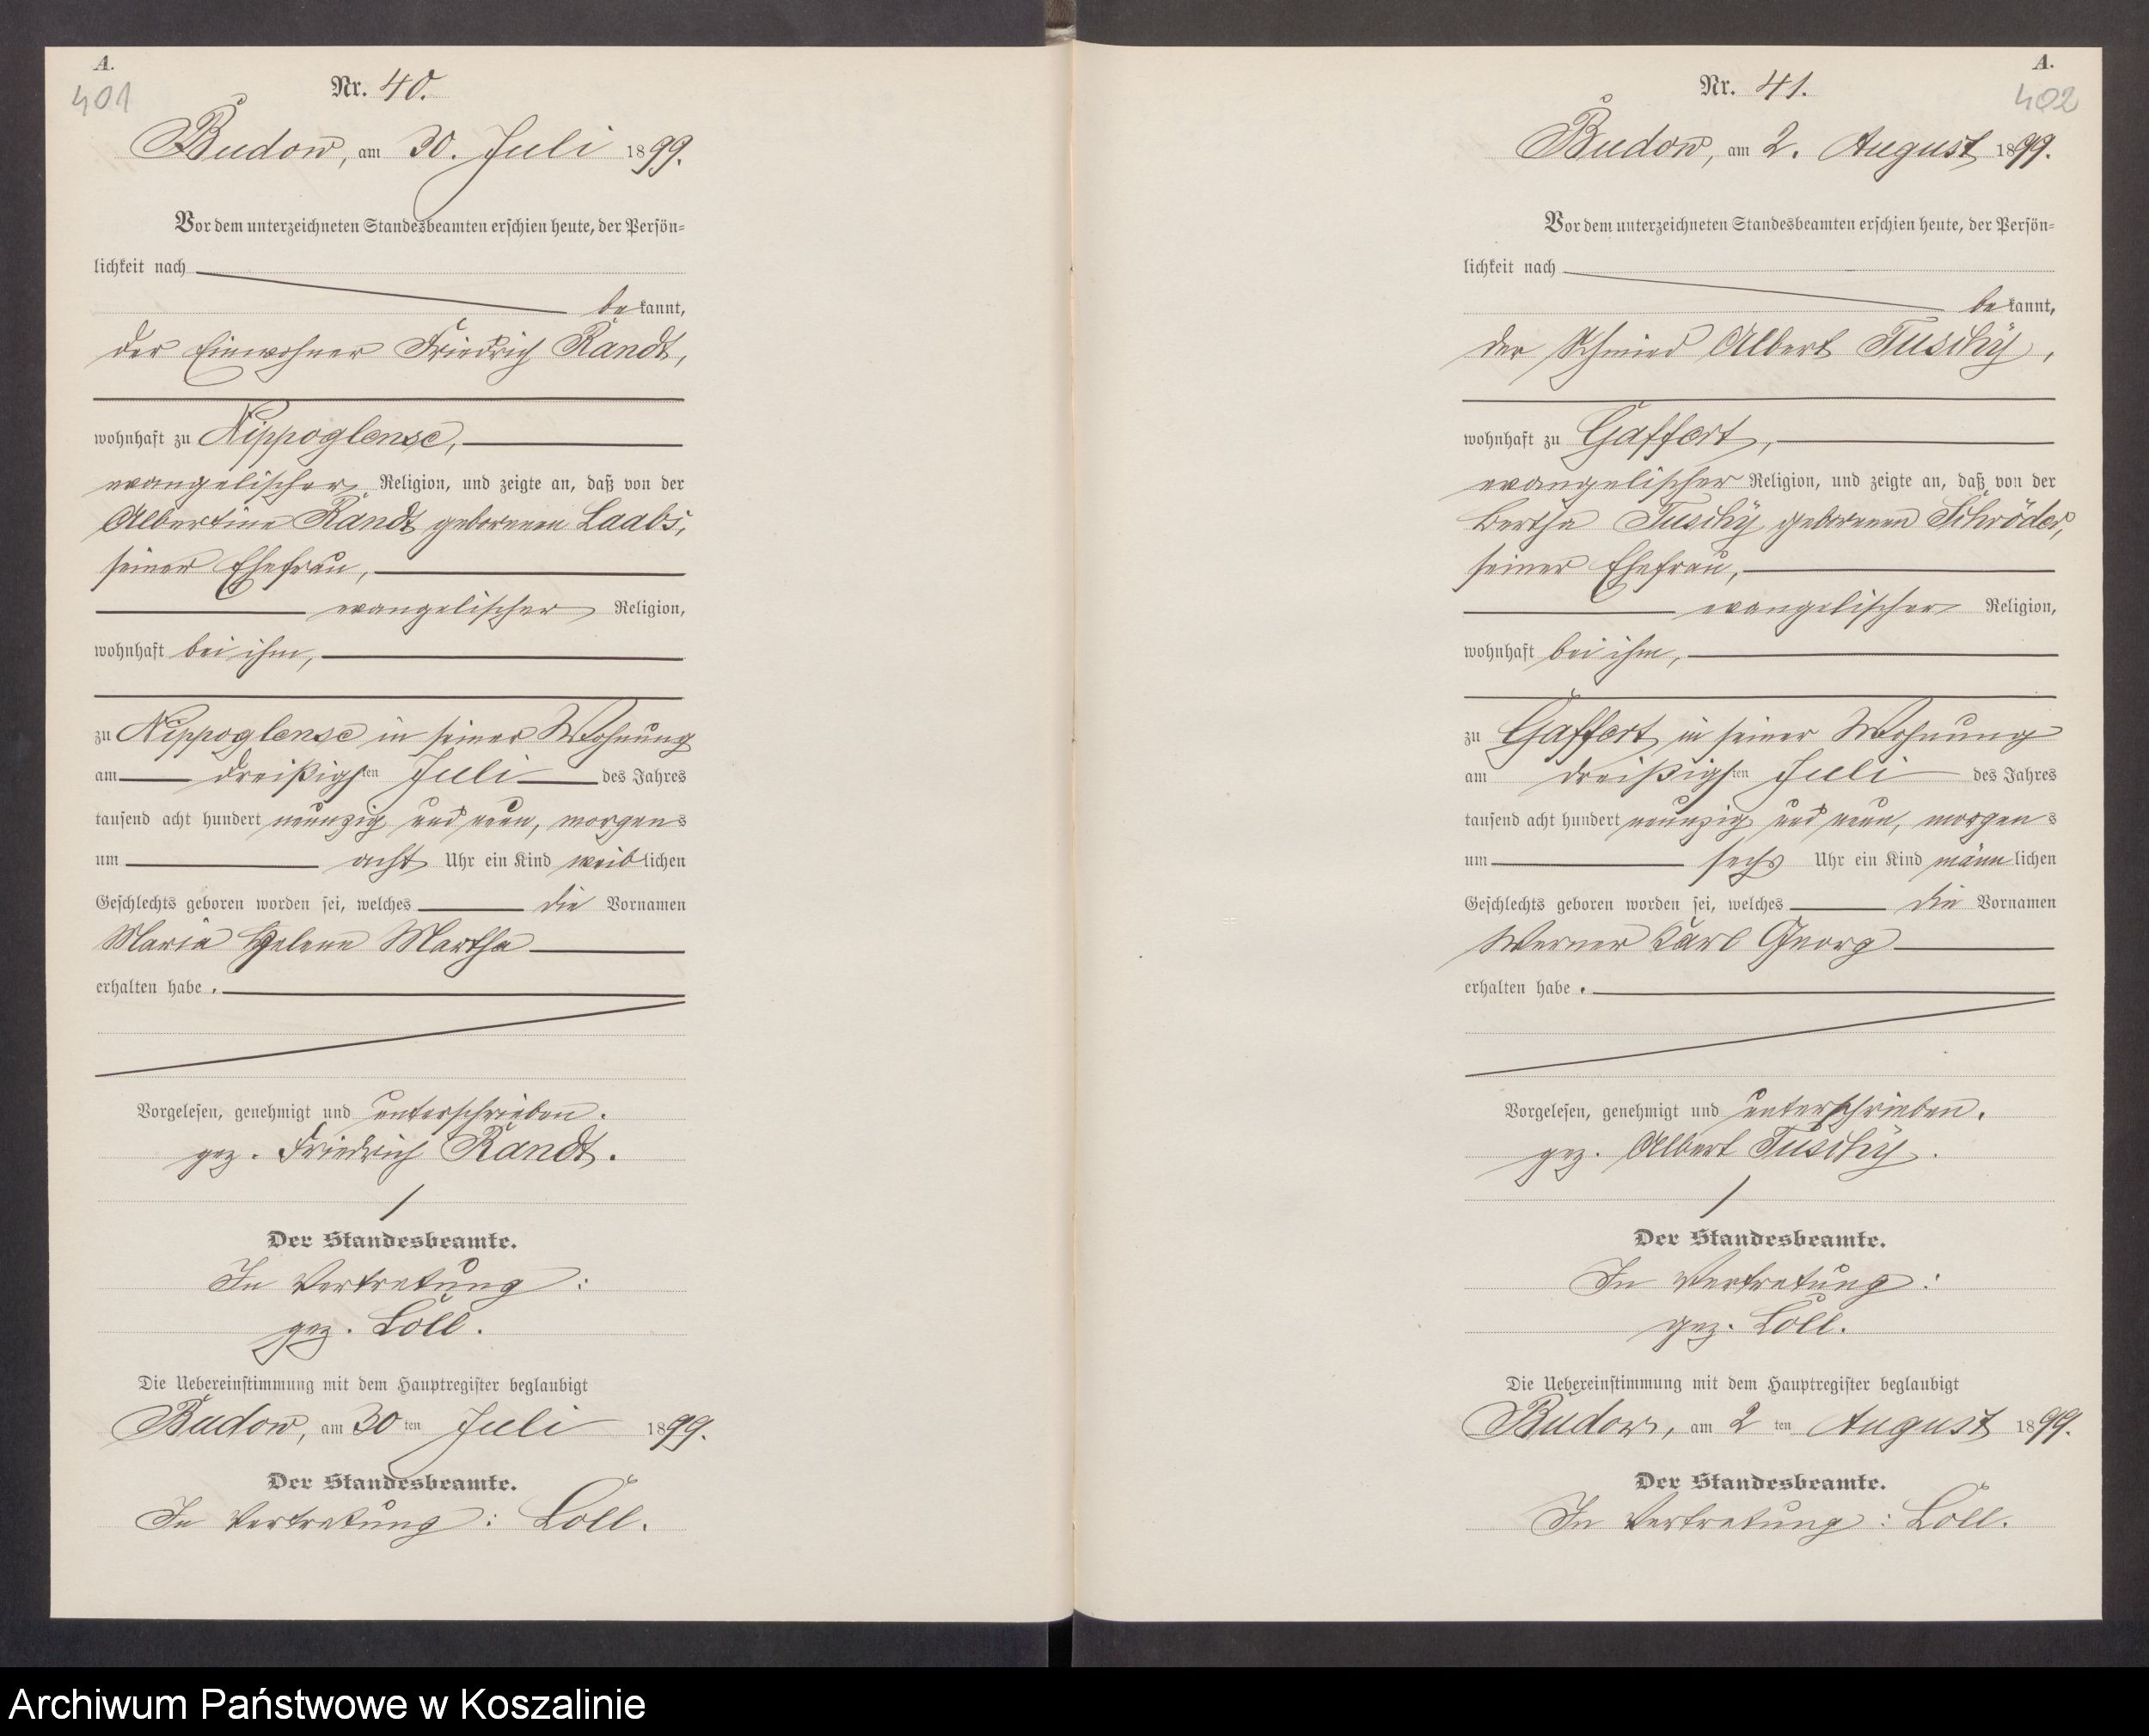 A.
401
Nr. 40.
Budow, am 30. Juli 1899.
Vor dem unterzeichneten Standesbeamten erschien heute, der Persön=
lichkeit nach
bekannt,
der Einwohner Friedrich Randt,
wohnhaft zu Nippoglense,
evangelischer Religion, und zeigte an, daß von der
Albertine Randt geborenen Laabs,
seiner Ehefrau,
evangelischer Religion,
wohnhaft bei ihm,
zu Nippoglense in seiner Wohnung
am dreißigsten Juli des Jahres
tausend acht hundert neunzig und neun, morgens
um acht Uhr ein Kind weiblichen
Geschlechts geboren worden sei, welches die Vornamen
Maria Helene Martha
erhalten habe.
Vorgelesen, genehmigt und unterschrieben.
gez. Friedrich Randt.
Der Standesbeamte.
In Vertretung:
gez. Loll.
Die Uebereinstimmung mit dem Hauptregister beglaubigt
Budow, am 30ten Juli 1899.
Der Standesbeamte.
In Vertretung: Loll.
A.
402
Nr. 41.
Budow, am 2. August 1899.
Vor dem unterzeichneten Standesbeamten erschien heute, der Persön=
lichkeit nach
bekannt,
der Schmied Albert Tuschy,
wohnhaft zu Gaffert,
evangelischer Religion, und zeigte an, daß von der
Bertha Tuschy geborenen Schröder,
seiner Ehefrau,
evangelischer Religion,
wohnhaft bei ihm,
zu Gaffert in seiner Wohnung
am dreißigsten Juli des Jahres
tausend acht hundert neunzig und neun, morgens
um sechs Uhr ein Kind männlichen
Geschlechts geboren worden sei, welches die Vornamen
Werner Karl Georg
erhalten habe.
Vorgelesen, genehmigt und unterschrieben.
gez. Albert Tuschy.
Der Standesbeamte.
In Vertretung:
gez. Loll.
Die Uebereinstimmung mit dem Hauptregister beglaubigt
Budow, am 2ten August 1899.
Der Standesbeamte.
In Vertretung: Loll.
Archiwum Państwowe w Koszalinie